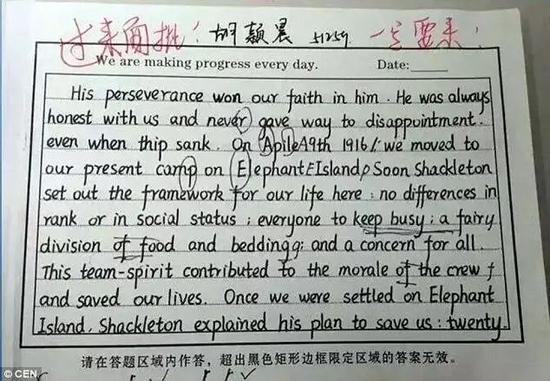 过来面批！胡颖晨 51259 一定要来！
We are making progress every day. Date:
His perseverance won our faith in him. He was always
honest with us and never gave way to disappointment.
even when thip sank. On ApileA9th 1916, we moved to
our present camp on Elephant Island, Soon Shackleton
set out the framework for our life here: no differences in
rank or in social status; everyone to keep busy; a fairy
division of food and bedding; and a concern for all.
This team-spirit contributed to the morale of the crew
and saved our lives. Once we were settled on Elephant
Island, Shackleton explained his plan to save us: twenty
请在答题区域内作答，超出黑色矩形边框限定区域的答案无效。
© CEN